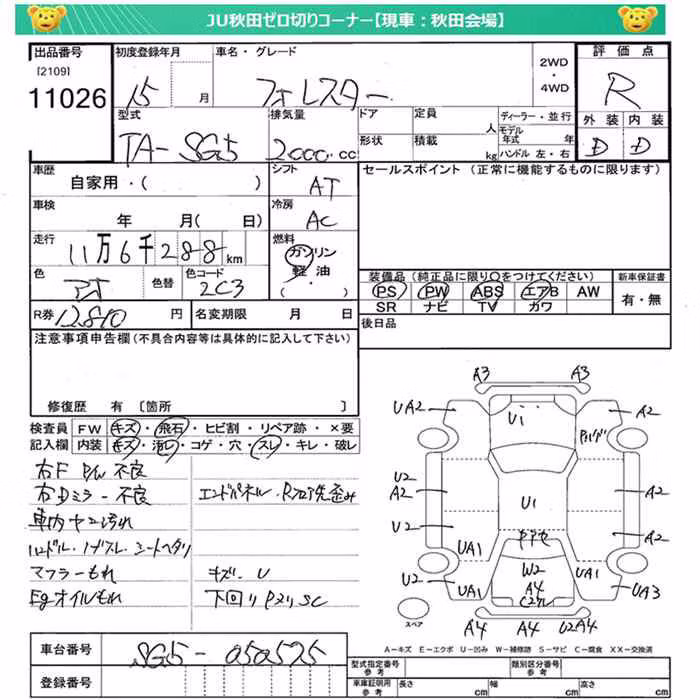 JU秋田ゼロ切りコーナー【現車：秋田会場】
出品番号
[2109]
11026
初度登録年月
15 月
車名・グレード
フォレスター
2WD
・
4WD
評価点
R
外装 内装
D D
型式
TA-SG5
排気量
2000.cc
ドア
形状
定員
人
積載
kg
ディーラー・並行
モデル
年式 年
ハンドル 左・右
車歴
自家用・( )
シフト
AT
セールスポイント (正常に機能するものに限ります)
車検
年 月( 日)
冷房
AC
走行
11万6千288km
燃料
ガソリン
軽油
・( )
色
色替
色コード
2C3
装備品 (純正品に限り○をつけてください)
PS PW ABS エアB AW
SR ナビ TV カワ
新車保証書
有・無
R券 12810 円
名変期限 月 日
後日品
注意事項申告欄 (不具合内容等は具体的に記入して下さい)
修復歴 有 [箇所 ]
検査員
記入欄
FW キズ・飛石・ヒビ割・リペア跡・×要
内装 キズ・汚れ・コゲ・穴・スレ・キレ・破レ
右F P/W 不良
右Dミラー不良
車内ヤニ汚れ
ハンドル・ノブスレ シートヘタリ
マフラーもれ
Egオイルもれ
エンドパネル・Rフロア先歪み
キズ・U
下回りPスリSC
A3 A3
UA2 U1 A2
U2
A2 U1 A2
U2 A2
UA1 UA1
U2 W2 UA3
A4
A4 A4 U2A4
スペア
A-キズ E-エクボ U-凹み W-補修跡 S-サビ C-腐食 XX-交換済
車台番号
SG5-050525
登録番号
型式指定番号
参考
類別区分番号
参考
車庫証明用
参考
長さ cm
幅 cm
高さ cm